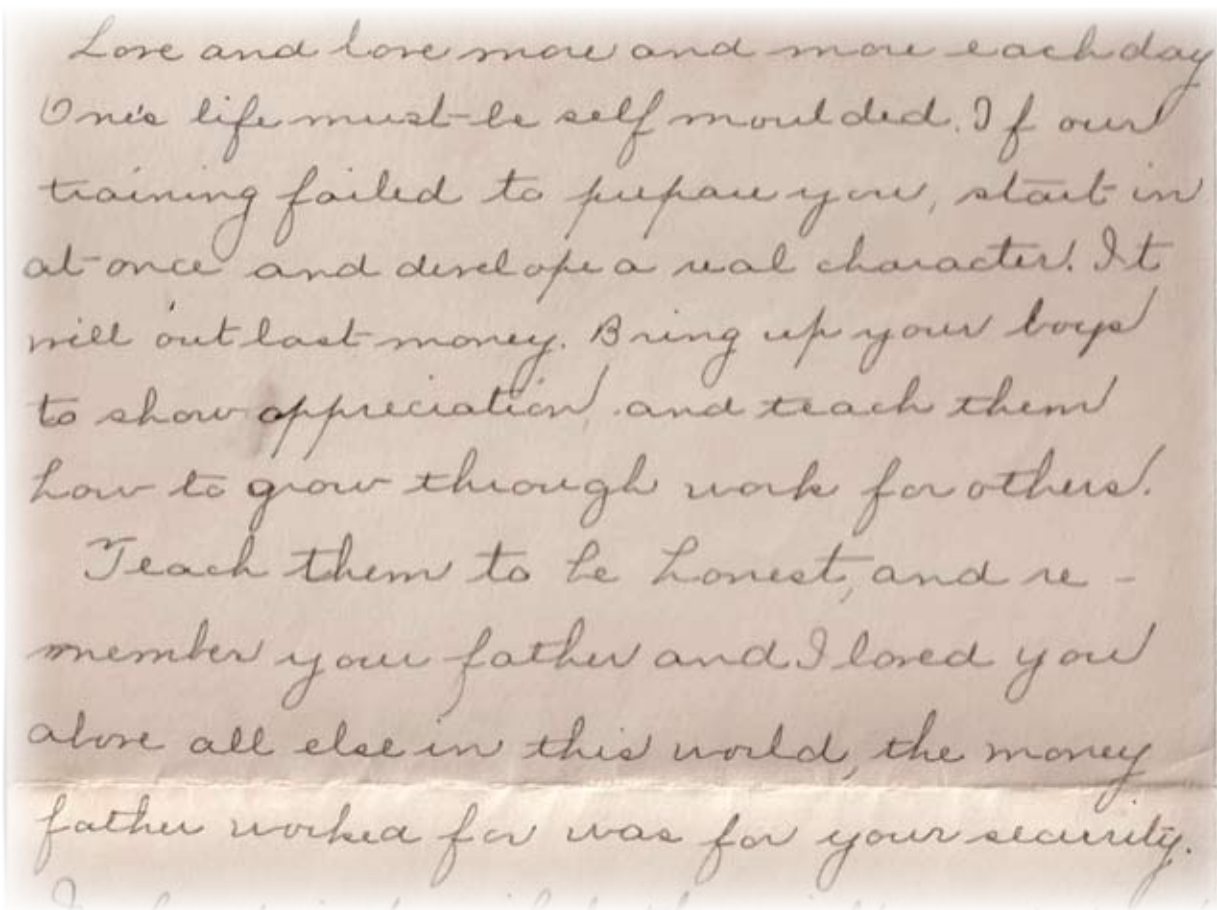 Love and love more and more each day
One's life must be self moulded. If our
training failed to prepare you, start in
at once and develope a real character. It
will out last money. Bring up your boys
to show appreciation, and teach them
how to grow through work for others.
Teach them to be honest, and re-
member your father and I loved you
above all else in this world, the money
father worked for was for your security.